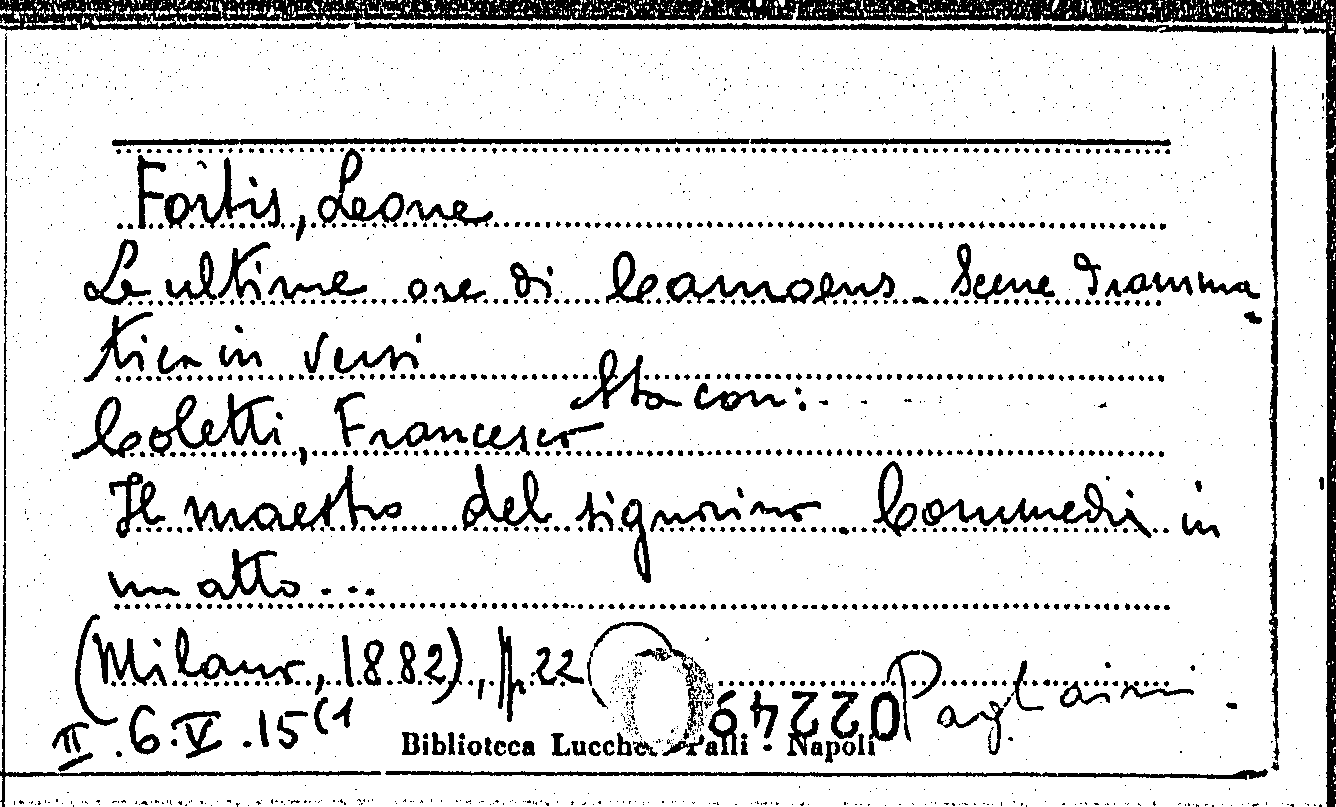 Fortis, Leone
Le ultime ore di Camoens. Scene dramma
tica in versi
Sta con:
Coletti, Francesco
Il maestro del signorino. Commedia in
un atto...
(Milano, 1882), p. 22
022049 Pagliaini
II.6.V.15(1
Biblioteca Lucchesi Palli - Napoli